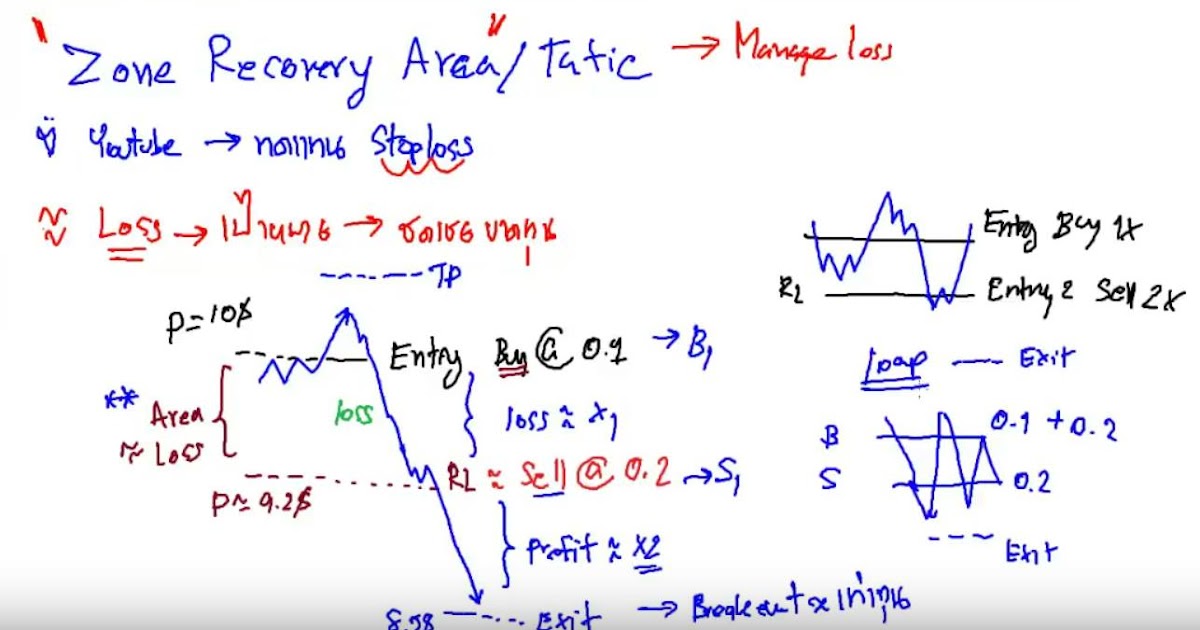 "Zone Recovery Area"/Tatic → Manage loss
Youtube → ทดแทน Stoploss
≈ Loss → เป้าหมาย → ชดเชย ขาดทุน
TP
P=10$
Entry Buy @ 0.1 → B1
** Area ≈ Loss
loss
loss ≈ x1
RL ≈ Sell @ 0.2 → S1
P≈9.2$
Profit ≈ x2
Exit → Breakeven
Entry Buy 1x
RL
Entry 2 Sell 2x
Loop — Exit
B
0.1 + 0.2
S
0.2
Exit